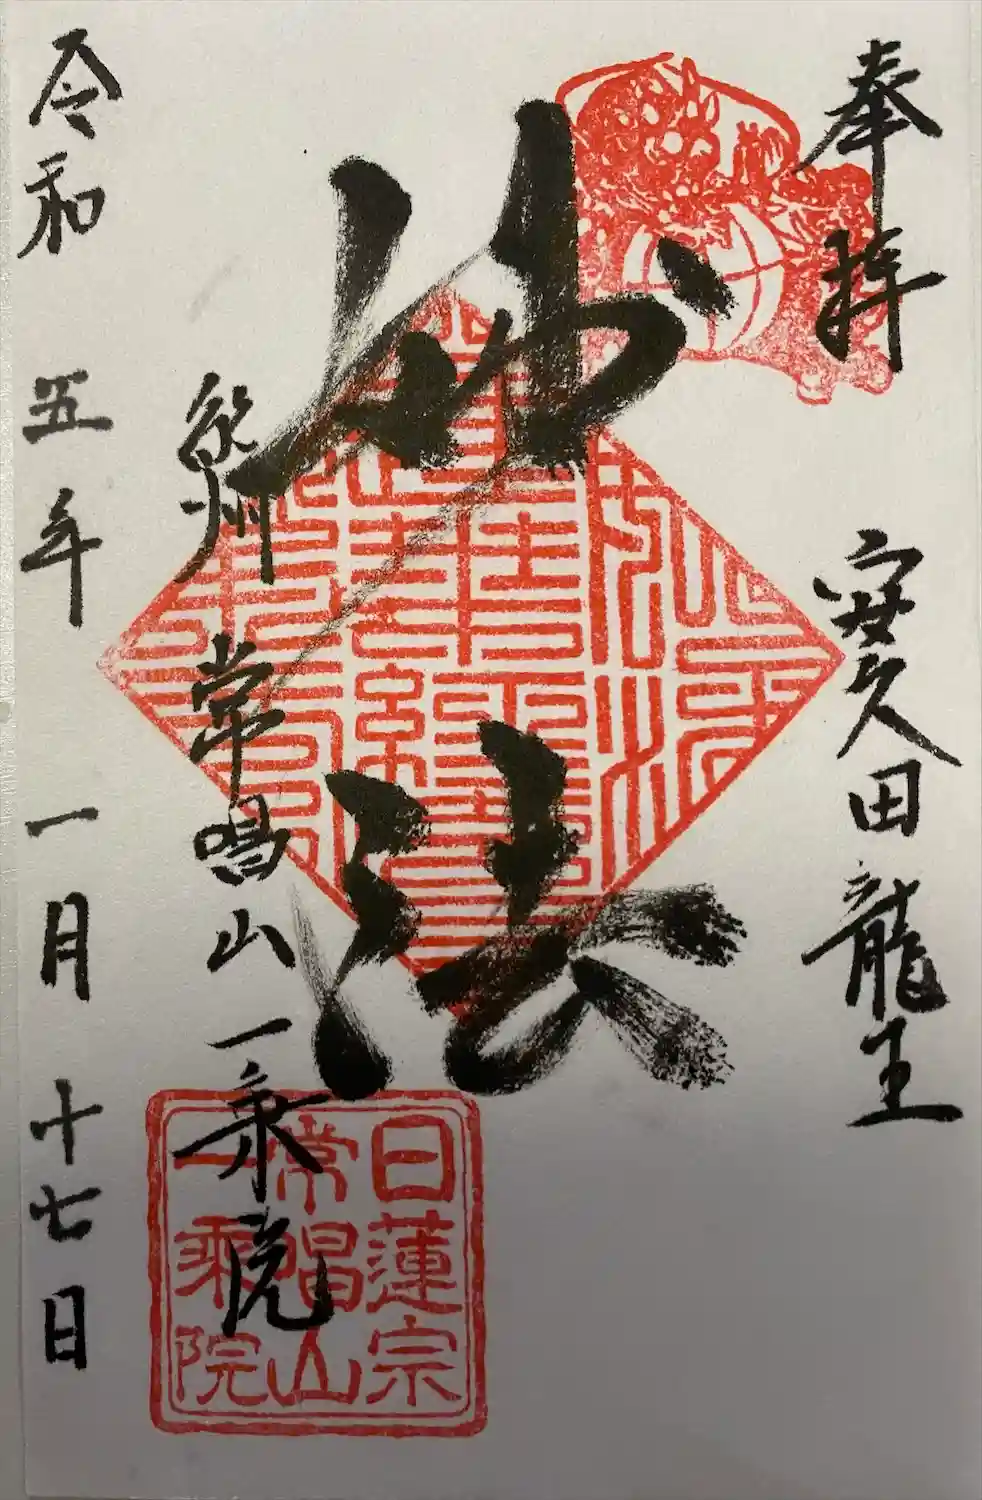 奉拝
安久田龍王
妙法
常昌山一乗院
令和五年一月十七日
日蓮宗
常昌山
一乗院